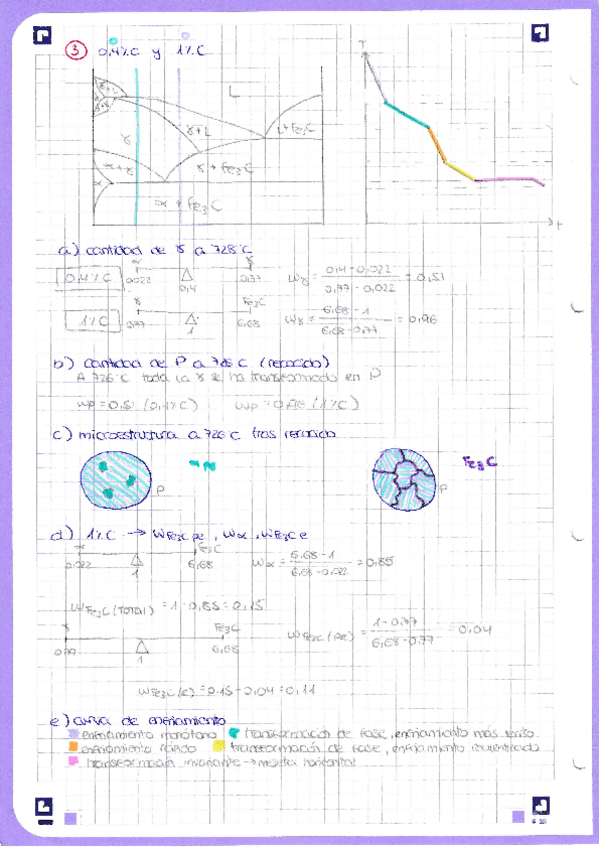 3 0,4%C y 1%C
T
L
γ+L
γ
γ+L
L+Fe₃C
α+γ
γ+Fe₃C
α
α+Fe₃C
t
a) cantidad de γ a 728°C
0,4%C
α γ
0,022 0,4 0,77
Wγ = (0,4-0,022)/(0,77-0,022) = 0,51
1%C
γ Fe₃C
0,77 1 6,68
Wγ = (6,68-1)/(6,68-0,77) = 0,96
b) cantidad de P a 726°C (recocido)
A 726°C toda la γ se ha transformado en P
Wp=0,51 (0,4%C) Wp=0,96 (1%C)
c) microestructura a 726°C tras recocido
P
P
Fe₃C
d) 1%C → WFe₃C pe, Wα, WFe₃C e
α Fe₃C
0,022 1 6,68
Wα = (6,68-1)/(6,68-0,022) = 0,85
WFe₃C(TOTAL) = 1-0,85=0,15
γ Fe₃C
0,77 1 6,68
WFe₃C(pe) = (1-0,77)/(6,68-0,77) = 0,04
WFe₃C(e)=0,15-0,04=0,11
e) curva de enfriamiento
enfriamiento monótono transformación de fase, enfriamiento más lento
enfriamiento rápido transformación de fase, enfriamiento ralentizado
transformación invariante → meseta horizontal